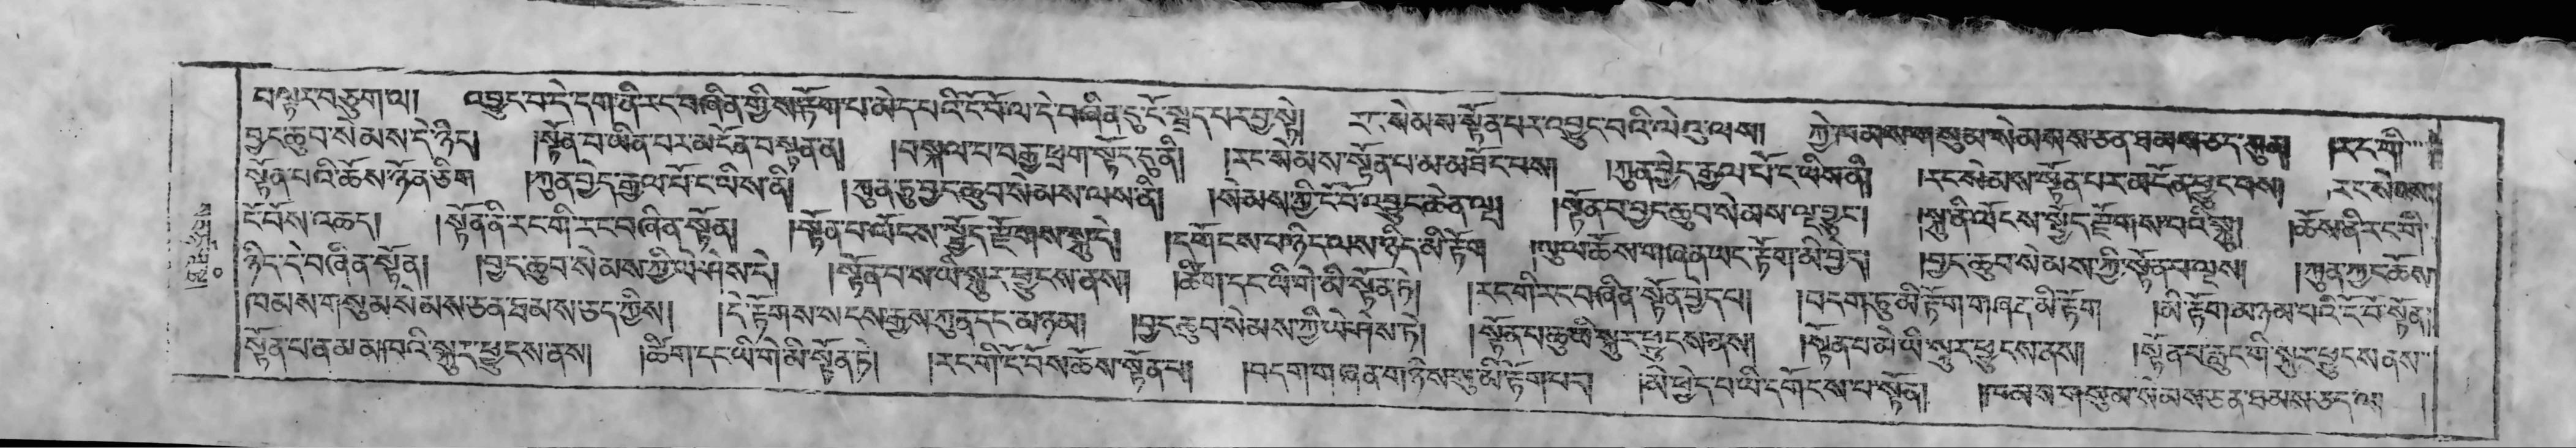 བ་ལྟར་བཅུག་ལ། འབྱུང་བ་དེ་དག་ནི་རང་བཞིན་གྱིས་རྟོག་པ་མེད་པའི་ངོ་བོ་ལ་དེ་བཞིན་དུ་ངོ་སྤྲད་པར་བྱ་སྟེ། རང་སེམས་སྟོན་པར་འབྱུང་བའི་ལེའུ་ལས། ཀྱེ་ཁམས་གསུམ་སེམས་ཅན་ཐམས་ཅད་ཀུན། །རང་གི་
བྱང་ཆུབ་སེམས་དེ་ཉིད། །སྟོན་པ་ཡིན་པར་མངོན་བསྟན་ན། །བསྐལ་པ་བརྒྱ་ཕྲག་སྟོང་དུ་ནི། །རང་སེམས་སྟོན་པ་མ་མཐོང་པས། །ཀུན་བྱེད་རྒྱལ་པོ་ང་ཡིས་ནི། །རང་སེམས་སྟོན་པར་མངོན་ཕྱུང་བས། རང་སེམས་
སྟོན་པའི་ཆོས་ཉོན་ཅིག །ཀུན་བྱེད་རྒྱལ་པོ་ང་ཡིས་ནི། །ཀུན་ཏུ་བྱང་ཆུབ་སེམས་ལས་ནི། །སེམས་ཀྱི་ངོ་བོ་འབྱུང་ཆེན་ལྔ། །སྟོན་པ་བྱང་ཆུབ་སེམས་ལྔ་བྱུང་། །སྐུ་ནི་ལོངས་སྤྱོད་རྫོགས་པའི་སྐུ། །ཆོས་ནི་རང་གི་
ངོ་བོས་འཆད། །སྟོན་ནི་རང་གི་རང་བཞིན་སྟོན། །སྟོན་པ་ལོངས་སྤྱོད་རྫོགས་སྐུ་དེ། །དགོངས་པ་ཉིད་ལས་ཉིད་མི་རྟོག །ལུས་ཆོས་གཞན་ཡང་རྟོག་མི་བྱེད། །བྱང་ཆུབ་སེམས་ཀྱི་སྟོན་པ་ལྔས། །ཀུན་ཀྱང་ཆོས་
ཉིད་དེ་བཞིན་སྟོན། །བྱང་ཆུབ་སེམས་ཀྱི་ཡེ་ཤེས་དེ། །སྟོན་པ་ས་ཡི་སྐུར་ཕྱུངས་ནས། །ཚིག་དང་ཡི་གེ་མི་སྟོན་ཏེ། །རང་གི་རང་བཞིན་སྟོན་བྱེད་པ། །བདག་ཏུ་མི་རྟོག་གཞན་མི་རྟོག །མི་རྟོག་མཉམ་པའི་ངོ་བོ་སྟོན།
ཁམས་གསུམ་སེམས་ཅན་ཐམས་ཅད་ཀྱིས། །དེ་རྟོགས་སངས་རྒྱས་ཀུན་དང་མཉམ། །བྱང་ཆུབ་སེམས་ཀྱི་ཡེ་ཤེས་ཏེ། །སྟོན་པ་ཆུ་ཡི་སྐུར་ཕྱུངས་ནས། །སྟོན་པ་མེ་ཡི་སྐུར་ཕྱུངས་ནས། །སྟོན་པ་རླུང་གི་སྐུར་ཕྱུངས་ནས་
སྟོན་པ་ནམ་མཁའི་སྐུར་ཕྱུངས་ནས། །ཚིག་དང་ཡི་གེ་མི་སྟོན་ཏེ། །རང་གི་ངོ་བོས་ཆོས་སྟོན་པ། །བདག་གཞན་གཉིས་སུ་མི་རྟོག་པད། །མི་ཕྱེད་པ་ཡི་དགོངས་པ་སྟོན། །ཁམས་གསུམ་སེམས་ཅན་ཐམས་ཅད་ལ། །